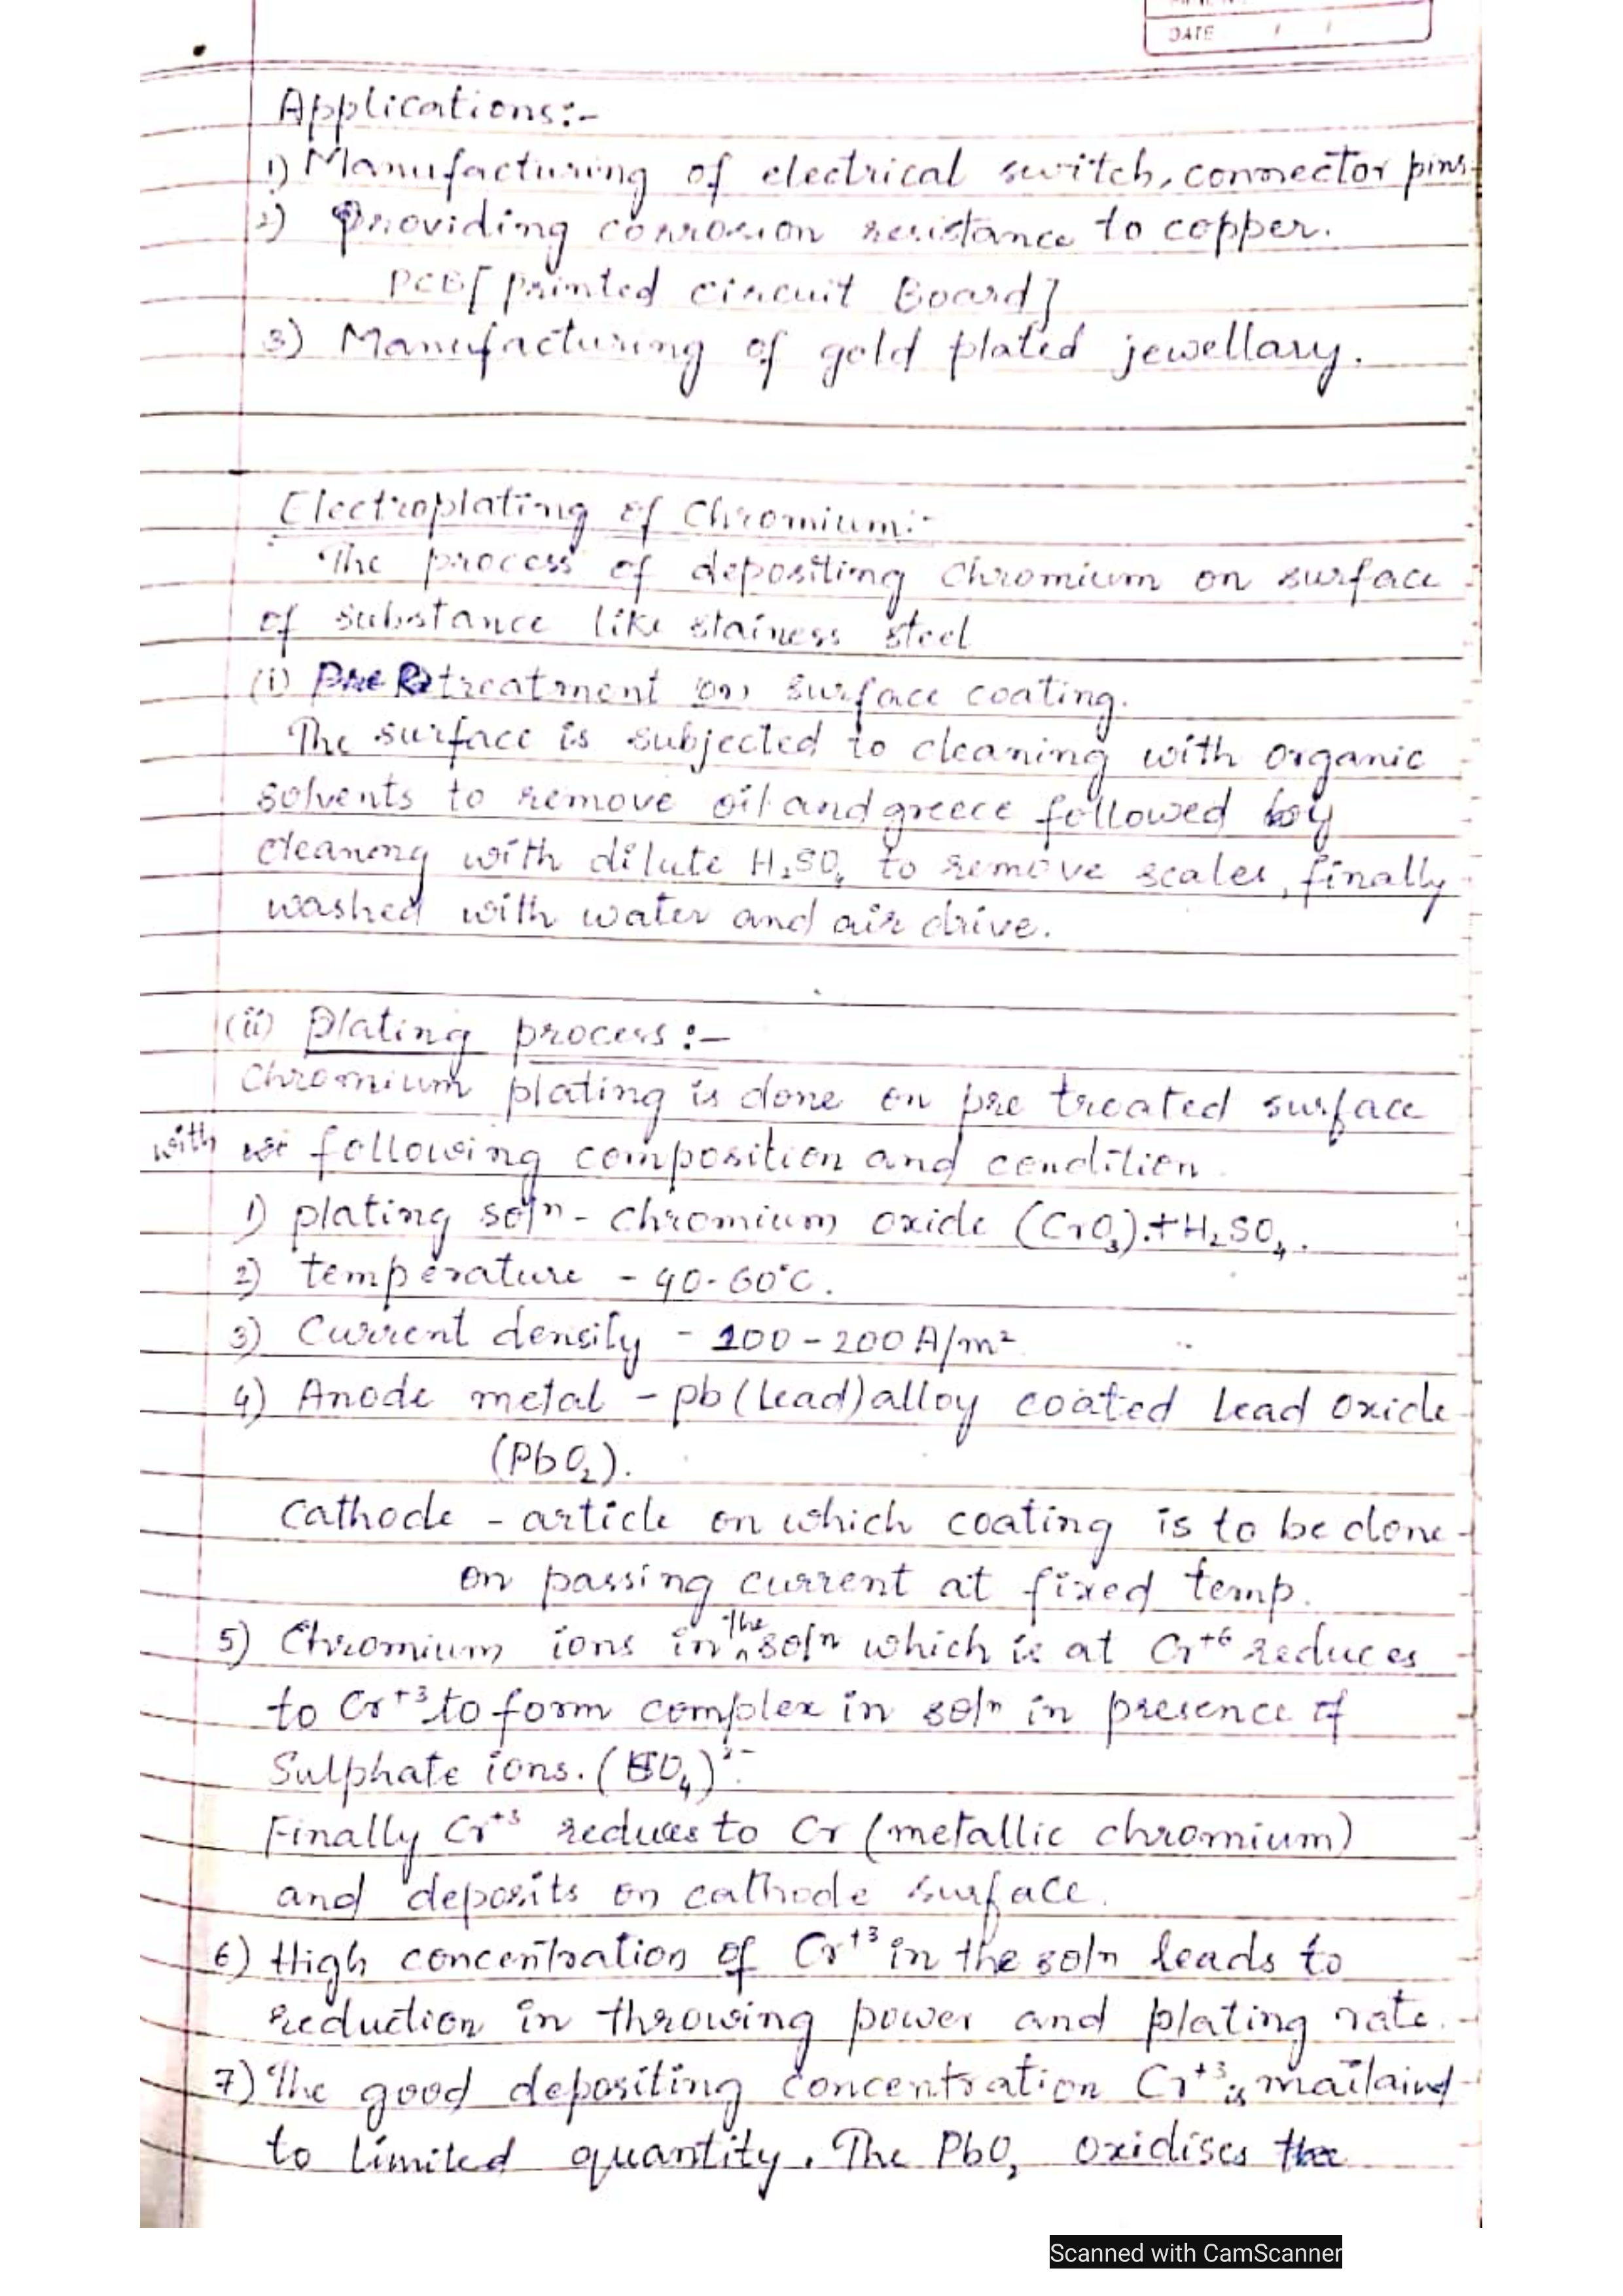 DATE / /
Applications:-
1) Manufacturing of electrical switch, connector pins
2) Providing corrosion resistance to copper.
PCB [printed circuit Board]
3) Manufacturing of gold plated jewellary.
Electroplating of Chromium:-
The process of depositing chromium on surface
of substance like stainess steel
(i) Pre treatment on surface coating.
The surface is subjected to cleaning with organic
solvents to remove oil and greece followed by
cleanong with dilute H₂SO₄ to remove scales, finally
washed with water and air drive.
(ii) Plating process:-
Chromium plating is done on pre treated surface
with following composition and condition
1) plating solⁿ - chromium oxide (CrO₃).+H₂SO₄.
2) temperature - 40-60°C.
3) Current density - 100-200 A/m²
4) Anode metal - pb (lead) alloy coated lead oxide
(PbO₂).
Cathode - article on which coating is to be done
on passing current at fixed temp.
5) Chromium ions in the solⁿ which is at Cr⁺⁶ reduces
to Cr⁺³ to form complex in solⁿ in presence of
Sulphate ions. (SO₄)²⁻.
Finally Cr⁺³ reduces to Cr (metallic chromium)
and deposits on cathode surface.
6) High concentration of Cr⁺³ in the solⁿ leads to
reduction in throwing power and plating rate.
7) The good depositing concentration Cr⁺³ is
to limited quantity. The PbO₂ oxidises the
Scanned with CamScanner